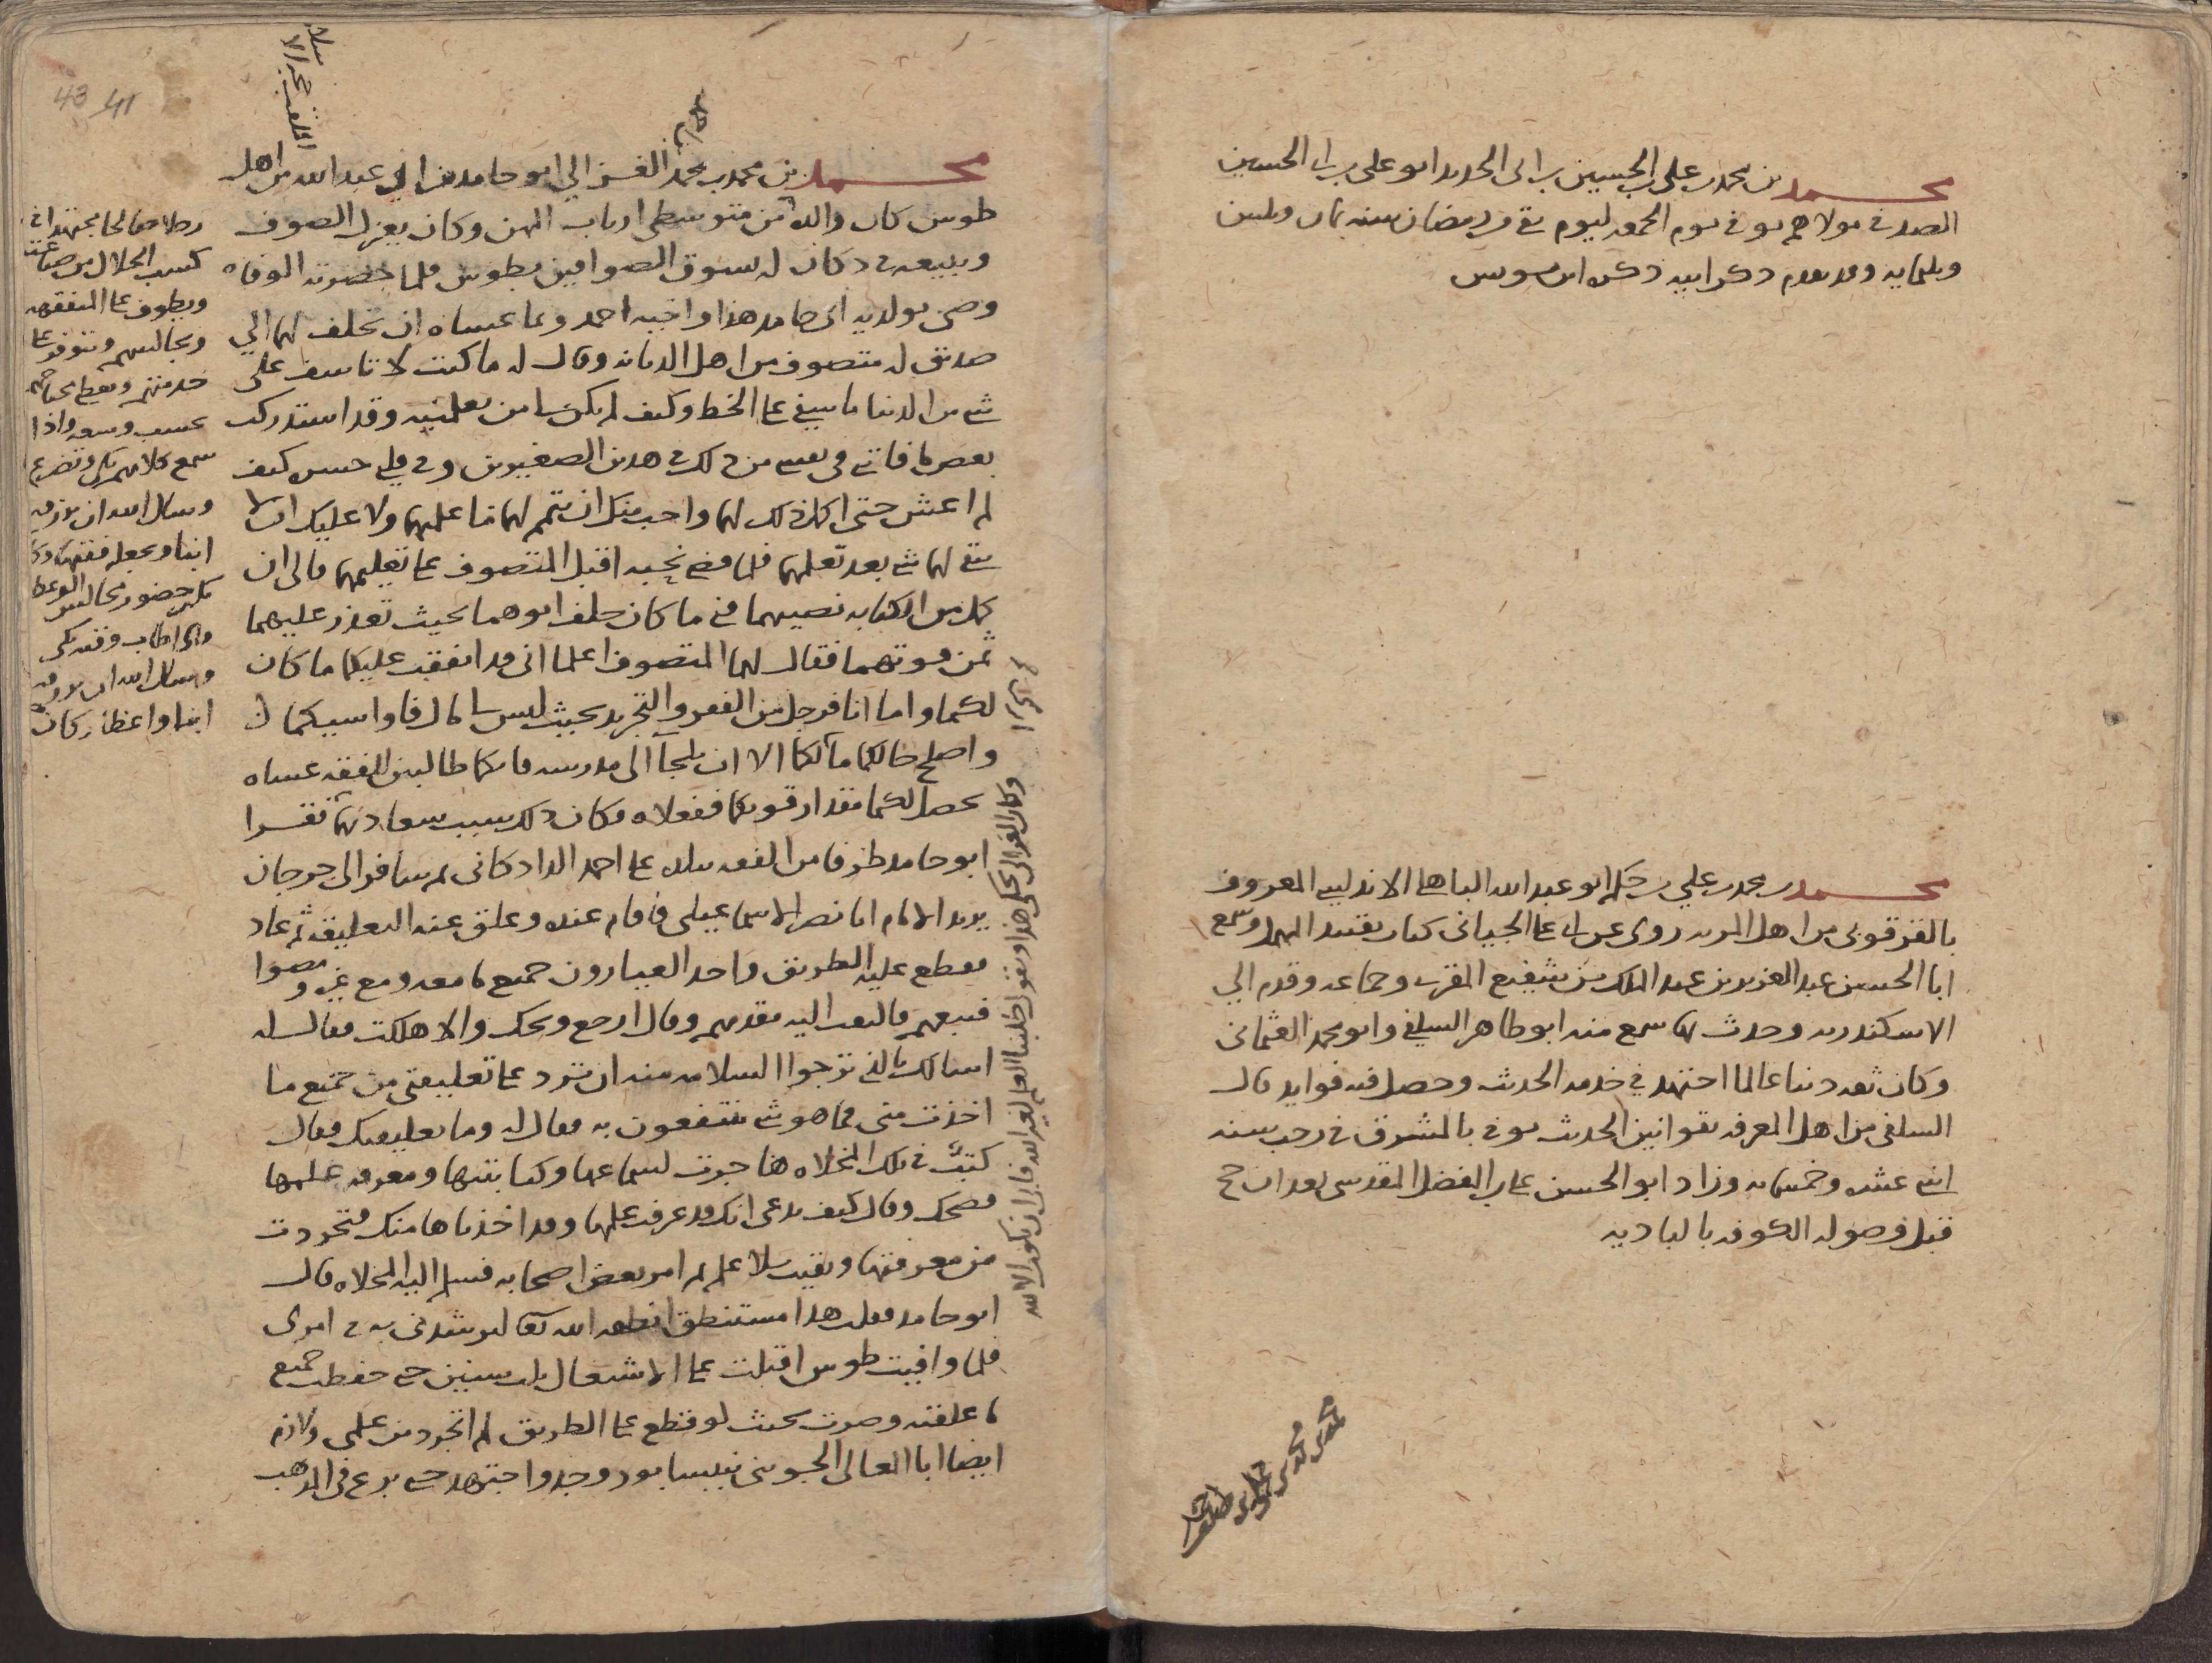 محمد بن محمد بن علي بن الحسين بن ابى الحديد ابو على بن ابى الحسين
الصدفى مولاهم توفى يوم الجمعه ليوم بقى من رمضان سنه ثمان وثلثين
وثلثمايه وقد تقدم ذكر ابيه ذكره ابن يونس
محمد بن محمد بن علي بن حكم ابو عبد الله الباهلى الاندلسى المعروف
بالقرقوبى من اهل المريه روى عن ابى على الجيانى كتاب تقييد المهمل وسمع
ابا الحسن عبد العزيز بن عبد الملك بن شفيع المقرى وجماعه وقدم الي
الاسكندريه وحدث بها سمع منه ابو طاهر السلفى وابو محمد العثمانى
وكان ثقه دينا عالما اجتهد في خدمه الحديث وحصل فيه فوايد قال
السلفى من اهل المعرفه بقوانين الحديث توفى بالمشرق فى رجب سنه
اثنى عشره وخمسمايه وزاد ابو الحسن على بن المفضل المقدسى بعد ان حج
قبل وصوله الكوفه بالباديه
محمد بن محمد بن محمد الغزالي ابو حامد بن ابى عبد الله من اهل
طوس كان والده من متوسطى ارباب المهن وكان يغزل الصوف
ويبيعه فى دكان له بسوق الصوافين بطوس فلما حضرته الوفاه
وصى بولديه ابى حامد هذا واخيه احمد وبما عساه ان يخلف لهما الي
صديق له متصوف من اهل الديانه وقال له ما كنت لا تاسف على
شى من الدنيا ما سفى على الخط وكيف لم يكن لنا من يعلمنيه وقد استدركت
بعض ما فاتنى فى نفسى من ذلك فى هذين الصغيرين وفى قلبى حسره كيف
لم اعش حتى اكمل ذلك لهما واحب منك ان تتمم لهما تعليمهما ولا عليك ان لا
يبقى لهما شى بعد تعلمهما فلما قضى نحبه اقبل المتصوف على تعليمهما فالى ان
كمل من الكتابه نصيبهما فنى ما كان خلف ابوهما بحيث تعذر عليهما
ثمن قوتهما فقال لهما المتصوف اعلما انى قد انفقت عليكما ما كان
لكما واما انا فرجل من الفقر والتجريد بحيث ليس لى مال فاواسيكما
واصلح حالكما مالكما الا ان تلجآ الى مدرسه فانكما طالبين للفقه عساه
يحصل لكما مقدار قوتكما ففعلاه فكان ذلك سبب سعادتهما فقرا
ابو حامد طرفا من الفقه ببلده على احمد الرادكانى ثم سافر الى جرجان
يريد الامام ابا نصر الاسماعيلى فاقام عنده وعلق عنه التعليق ثم عاد
فقطع عليه الطريق واخذ العيارون جميع ما معه ومع غيره ومضوا
فتبعهم فالتفت اليه مقدمهم وقال ارجع ويحك والا هلكت فقال له
اسالك بالذى ترجوا السلامه منه ان ترد على تعليقتى من جميع ما
اخذت منى فما هو شى تنتفعون به فقال له وما تعليقتك فقال
كتب فى تلك المخلاه هاجرت لسماعها وكتابتها ومعرفه علمها
فضحك وقال كيف تدعى انك قد عرفت علمها وقد اخذناها منك فتجردت
من معرفتها وبقيت بلا علم ثم امر بعض اصحابه فسلم اليه المخلاه قال
ابو حامد فقلت هذا مستنطق انطقه الله تعالى ليرشدنى به فى امرى
فلما وافيت طوس اقبلت على الاشتغال ثلث سنين حتى حفظت جميع
ما علقته وصرت بحيث لو قطع على الطريق لم اتجرد من علمى ولازم
ايضا ابا المعالى الجوينى بنيسابور وجد واجتهد حتى برع فى المذهب
رجلا صالحا مجتهدا فى
كسب الحلال من صناعته
ويطوف على المتفقهه
ويجالسهم ويتوفر على
خدمتهم ويعطى
بحسب وسعه واذا
سمع كلامهم بكى وتضرع
وسال الله ان يرزقه
ابنا ويجعله فقيها وكان
يكثر حضور مجالس الوعظ
واذا طاب وقته بكى
وسال الله ان يرزقه
ابنا واعظا وكان
وكان الغزالى يحكى هذا ويقول طلبنا العلم لغير الله فابى ان يكون الا لله